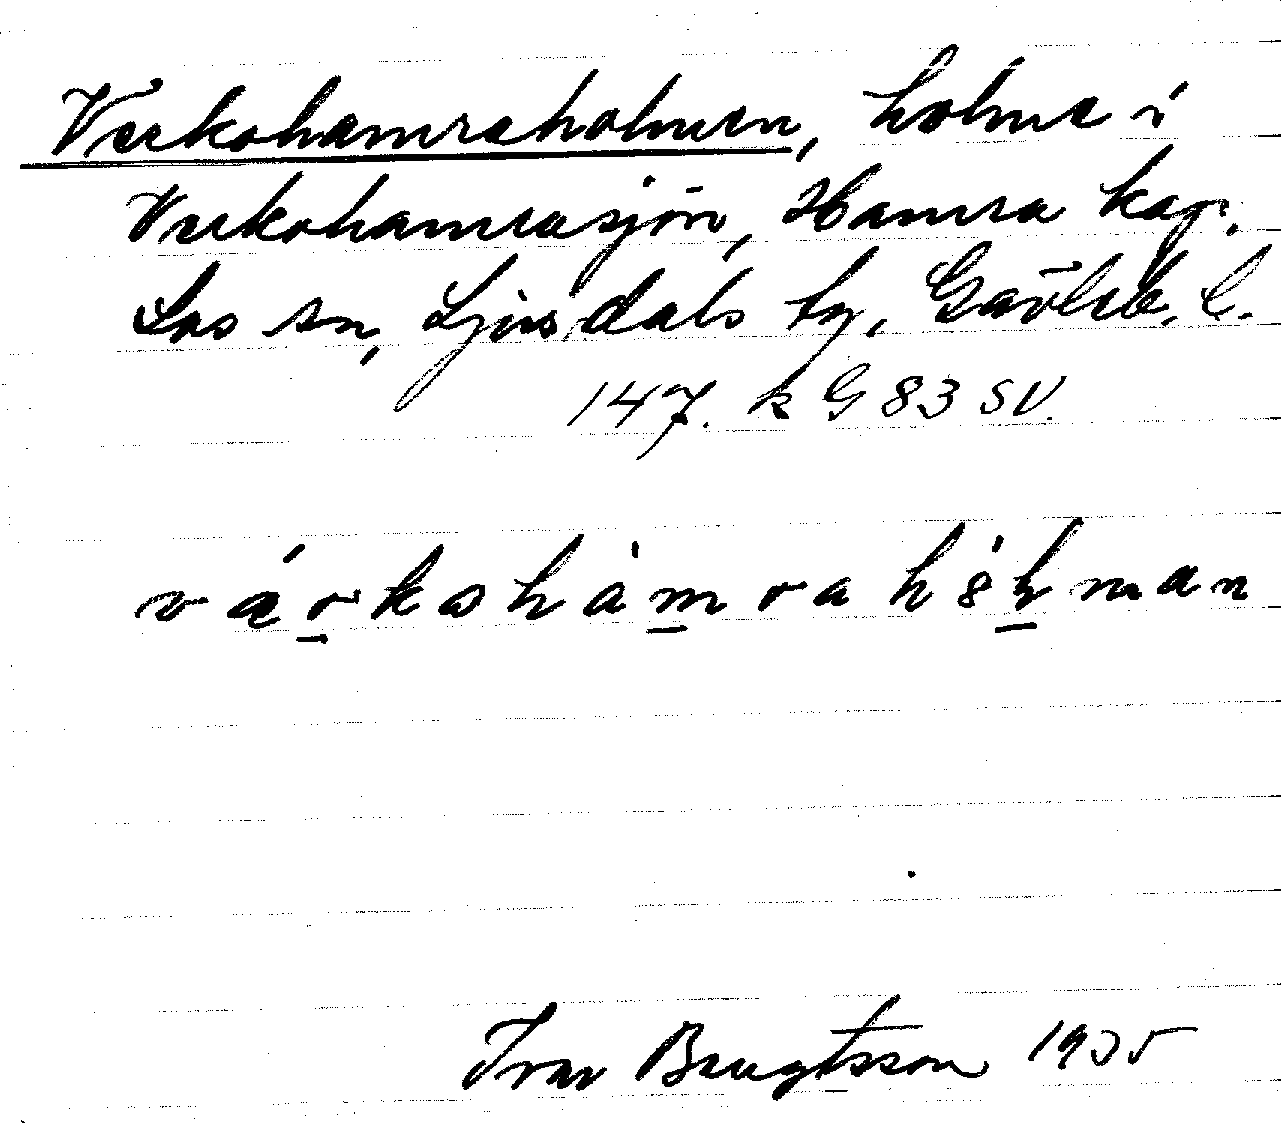 Verkohamraholmen, holme i
Verkohamrasjön, Hamra kap.
Los sn, Ljusdals tg, Gävleb. l.
147. k G 83 SV.
Ivar Bengtsson 1935